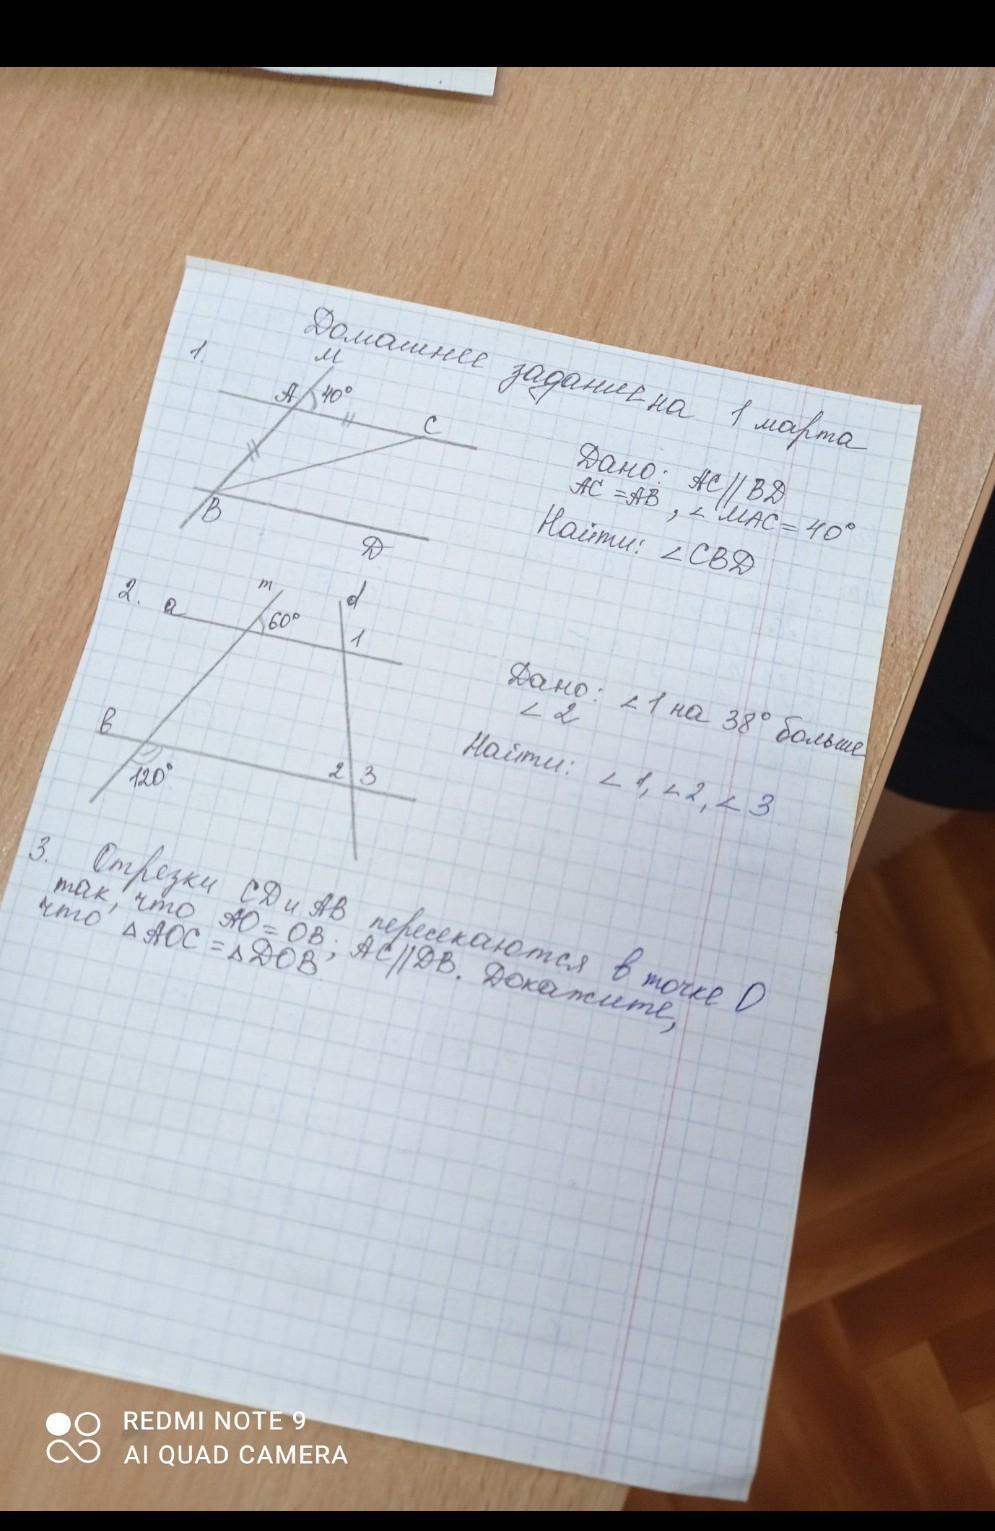 Домашнее задание на 1 марта
1.
M
A 40°
C
B
D
Дано: AC//BD
AC = AB, ∠MAC = 40°
Найти: ∠CBD
2. a m d
60° 1
b
120° 2 3
Дано: ∠1 на 38° больше
∠2
Найти: ∠1, ∠2, ∠3
3. Отрезки CD и AB пересекаются в точке O
так, что AO = OB; AC//DB. Докажите,
что △AOC = △DOB.
REDMI NOTE 9
AI QUAD CAMERA